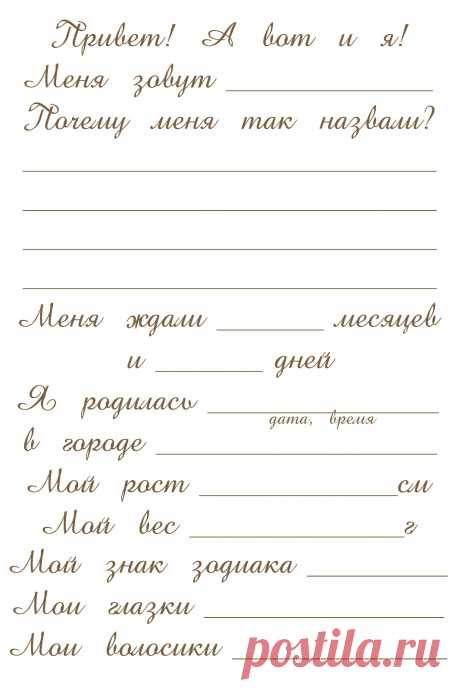 Привет! А вот и я!
Меня зовут
Почему меня так назвали?
Меня ждали месяцев
и дней
Я родилась
дата, время
в городе
Мой рост см
Мой вес г
Мой знак зодиака
Мои глазки
Мои волосики
postila.ru